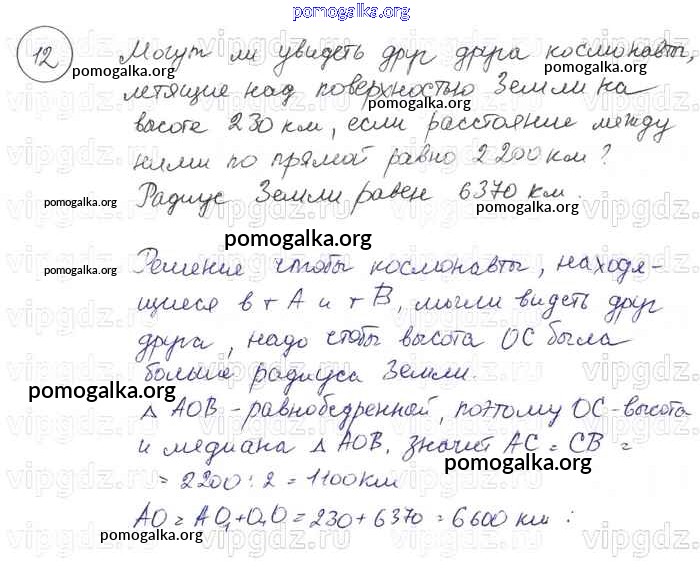 pomogalka.org
12 Могут ли увидеть друг друга космонавты,
pomogalka.org pomogalka.org
летящие над поверхностью Земли на
pomogalka.org
высоте 230 км, если расстояние между
ними по прямой равно 2200 км?
Радиус Земли равен 6370 км.
pomogalka.org pomogalka.org
pomogalka.org
Решение чтобы космонавты, находя-
pomogalka.org
щиеся в т A и т B, могли видеть друг
друга, надо чтобы высота OC была
больше радиуса Земли.
pomogalka.org
△ AOB - равнобедренной, поэтому OC - высота
и медиана △ AOB, значит AC = CB =
pomogalka.org
= 2200 : 2 = 1100 км
AO = AO₁ + O₁O = 230 + 6370 = 6600 км :
pomogalka.org
vipgdz.ru